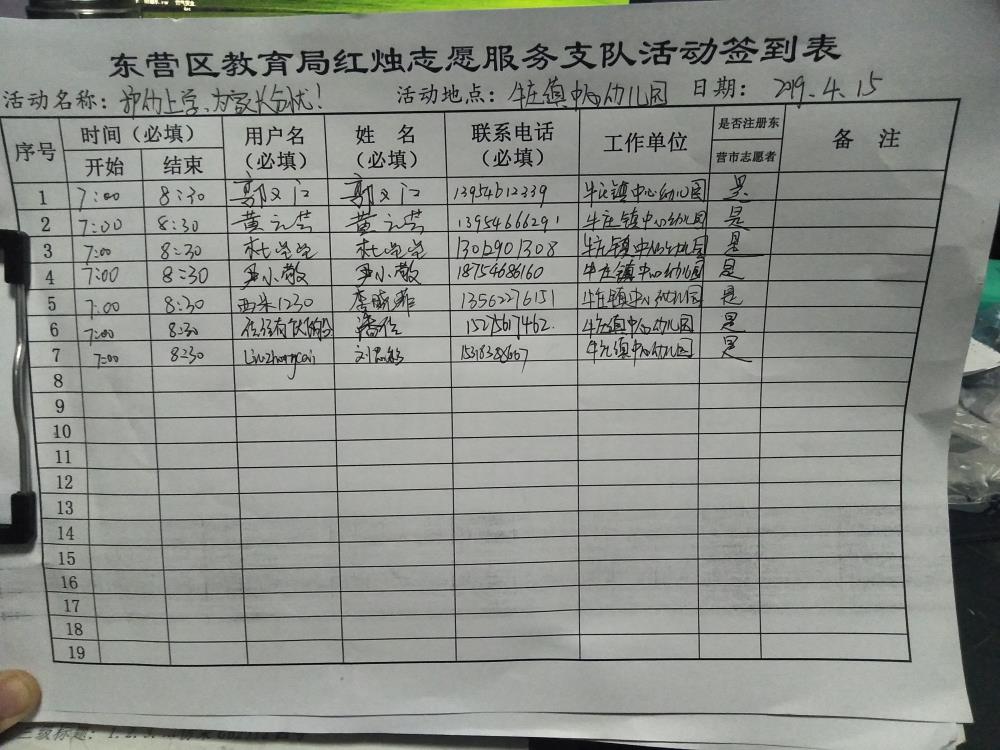 东营区教育局红烛志愿服务支队活动签到表
活动名称：护幼上学、为家长分忧！ 活动地点：牛庄镇中心幼儿园 日期：2019.4.15
序号 时间（必填） 用户名（必填） 姓 名（必填） 联系电话（必填） 工作单位 是否注册东营市志愿者 备 注
开始 结束
1 7:00 8:30 郭 郭 13954612339 牛庄镇中心幼儿园 是
2 7:00 8:30 黄 黄 13954666291 牛庄镇中心幼儿园 是
3 7:00 8:30 杜学学 杜学学 13012901308 牛庄镇中心幼儿园 是
4 7:00 8:30 尹小敬 尹小敬 18754686160 牛庄镇中心幼儿园 是
5 7:00 8:30 西米1230 李晓菲 13562276151 牛庄镇中心幼儿园 是
6 7:00 8:30 潘 15275617462 牛庄镇中心幼儿园 是
7 7:00 8:30 Liuzhongcai 刘 牛庄镇中心幼儿园 是
8
9
10
11
12
13
14
15
16
17
18
19
三级标题：1.2.3.